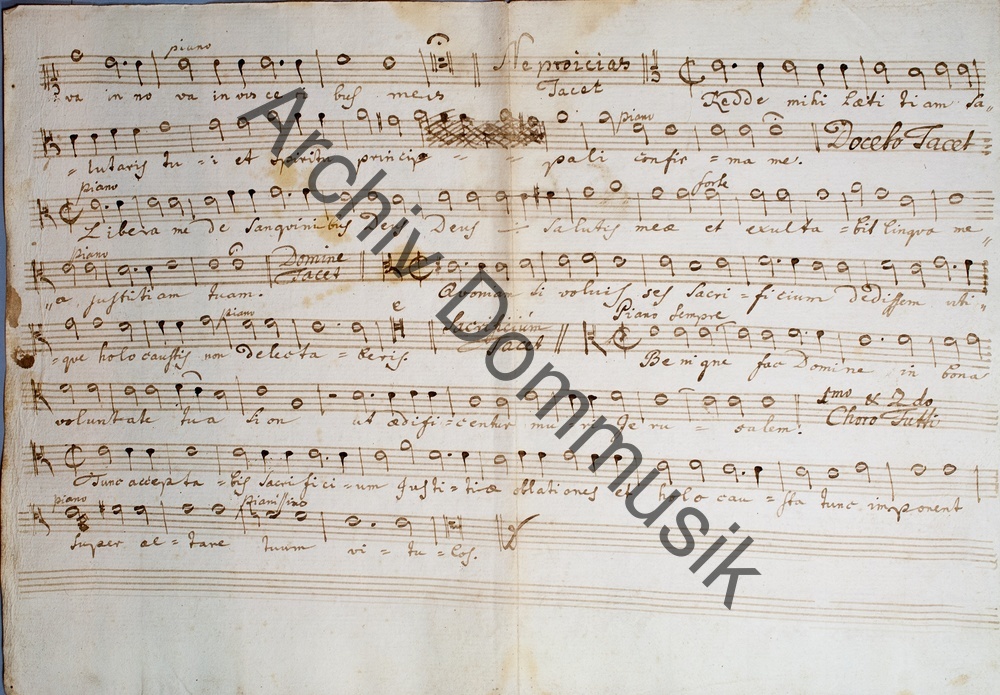 piano
va in no va in vis ce ri bus meis Ne proicias Tacet Redde mihi læti ti am sa=
piano
=lutaris tu =i et spiritu principa = = pali confir =ma me. Docebo Tacet
piano forte
Libera me de Sanquinibus Deus Deus salutis meæ et exulta =bit linqva me=
piano
"a justitiam tuam. Domine Tacet Qvoniam si voluis ses sacri =ficium dedissem uti=
piano Piano sempre
=que holocaustis non delecta =beris. Sacrificium Tacet Benigne fac Domine in bona
voluntate tua Sion ut ædifi =centur mu ri Jeru = salem. 1mo & 2do Choro Tutti
Tunc accepta =bis sacrifici =um justi =tiæ oblationes et holo cau =sta tunc imponent
piano pianissimo
super al =tare tuum vi =tu =los.
Archiv Dommusik